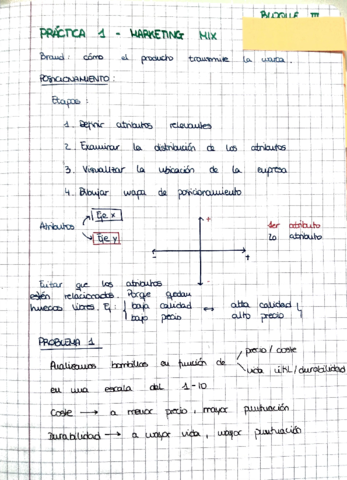 BLOQUE III
PRÁCTICA 1 - MARKETING MIX
Brand: cómo el producto transmite la marca.
POSICIONAMIENTO:
Etapas:
1. Definir atributos relevantes
2. Examinar la distribución de los atributos
3. Visualizar la ubicación de la empresa
4. Dibujar mapa de posicionamiento
Atributos
Eje x
Eje y
+
-
-
+
1er atributo
2o atributo
Evitar que los atributos
estén relacionados. Porque quedan
huecos libres. Ej: baja calidad ↔ alta calidad
bajo precio alto precio
PROBLEMA 1
Analizamos bombillas en función de precio / coste
vida útil / durabilidad
en una escala del 1-10
Coste → a menor precio, mayor puntuación
Durabilidad → a mayor vida, mayor puntuación